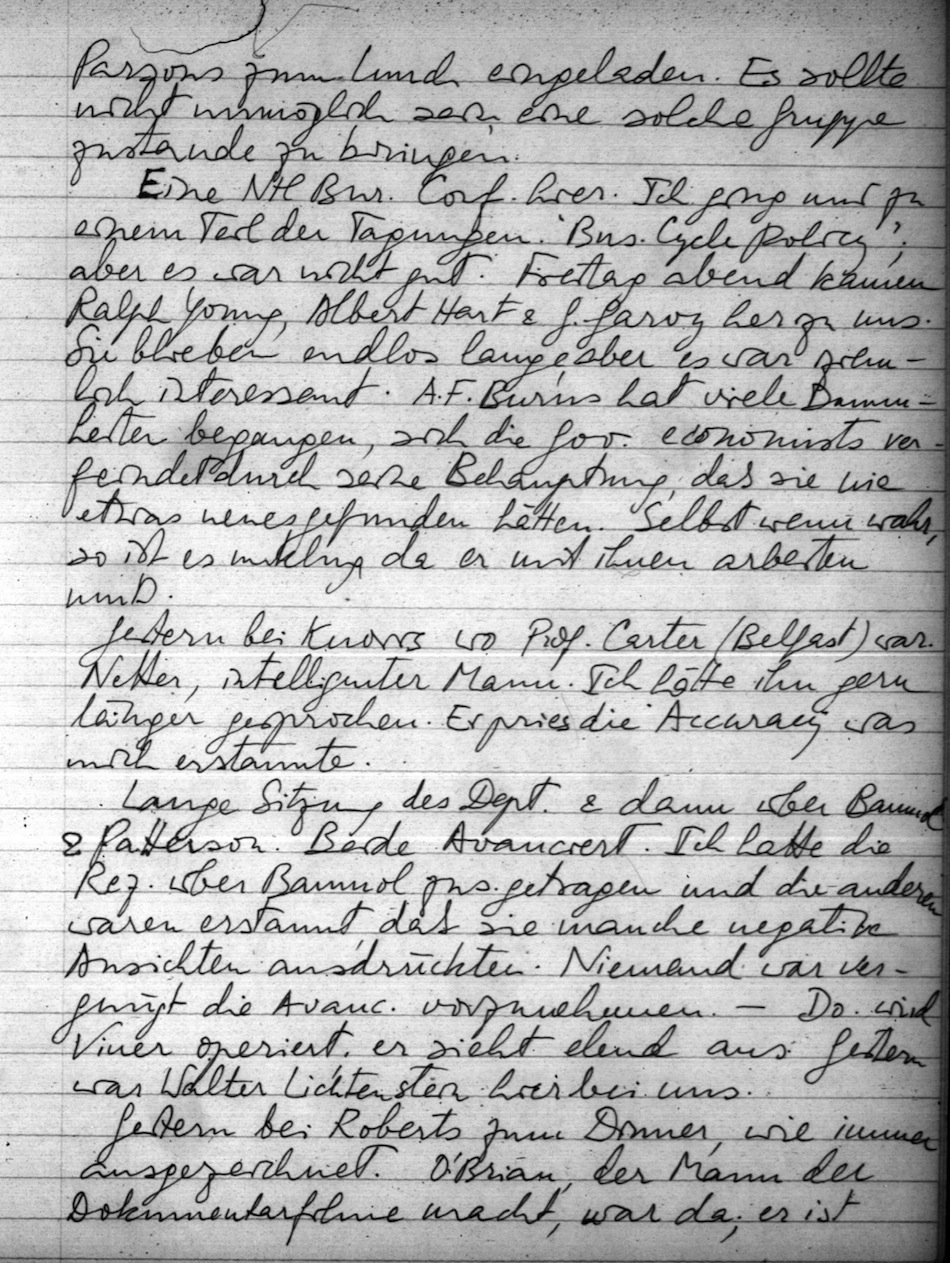 Parsons zum Lunch eingeladen. Es sollte
nicht unmöglich sein eine solche Gruppe
zustande zu bringen.
Eine Ntl Bur. Conf. hier. Ich ging nur zu
einem Teil der Tagungen. "Bus. Cycle Policy",
aber es war nicht gut. Freitag abend kamen
Ralph Young, Albert Hart & G. Garvy her zu uns.
Sie blieben endlos lange, aber es war ziem-
lich interessant. A.F. Burns hat viele Dumm-
heiten begangen, sich die Gov. economists ver-
feindet durch seine Behauptung, daß sie nie
etwas neues gefunden hätten. Selbst wenn wahr,
so ist es unklug da er mit ihnen arbeiten
muß.
Gestern bei Knorrs wo Prof. Carter (Belfast) war.
Netter, intelligenter Mann. Ich hätte ihn gern
länger gesprochen. Er pries die Accuracy was
mich erstaunte.
Lange Sitzung des Dept. & dann über Baumol
& Patterson. Beide Avanciert. Ich hatte die
Rez. über Baumol zus. getragen und die anderen
waren erstaunt daß sie manche negative
Ansichten ausdrückten. Niemand war ver-
gnügt die Avanc. vorzunehmen. — Do. wird
Viner operiert. er sieht elend aus. Gestern
war Walter Lichtenstein hier bei uns.
Gestern bei Roberts zum Dinner, wie immer
ausgezeichnet. O'Brian, der Mann der
Dokumentarfilme macht, war da; er ist